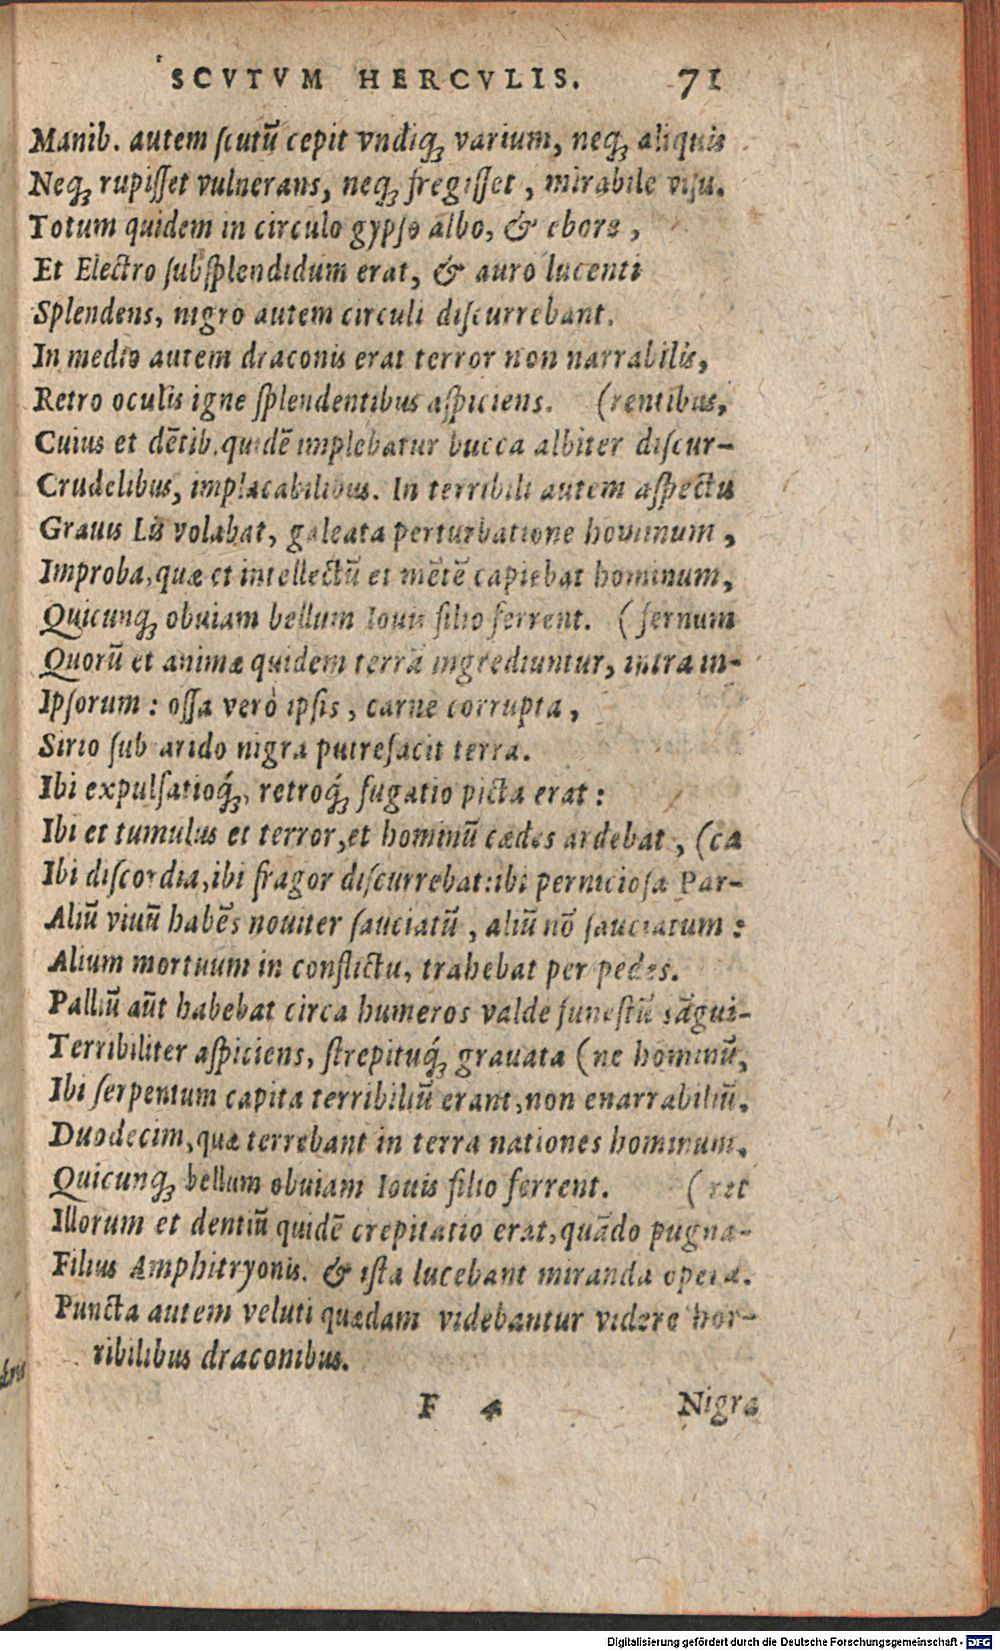 SCVTVM HERCVLIS. 71
Manib. autem ſcutũ cepit vndiq́; varium, neq́; aliquis
Neq́; rupiſſet vulnerans, neq́; fregiſſet, mirabile viſu.
Totum quidem in circulo gypſo albo, & ebore,
Et Electro ſubſplendidum erat, & auro lucenti
Splendens, nigro autem circuli diſcurrebant.
In medio autem draconis erat terror non narrabilis,
Retro oculis igne ſplendentibus aſpiciens. (rentibus,
Cuius et dẽtib. quidẽ implebatur bucca albiter diſcur-
Crudelibus, implacabilibus. In terribili autem aſpectu
Grauis Lis volabat, galeata perturbatione hominum,
Improba, quæ et intellectũ et mẽtẽ capiebat hominum,
Quicunq; obuiam bellum Iouis filio ferrent. (fernum
Quorũ et animæ quidem terrã ingrediuntur, intra in-
Ipſorum: oſſa verò ipſis, carne corrupta,
Sirio ſub arido nigra putrefacit terra.
Ibi expulſatioq́;, retroq́; fugatio picta erat:
Ibi et tumulus et terror, et hominũ cædes ardebat, (ca
Ibi diſcordia, ibi fragor diſcurrebat: ibi pernicioſa Par-
Aliũ viuũ habẽs nouiter ſauciatũ, aliũ nõ ſauciatum:
Alium mortuum in conflictu, trahebat per pedes.
Palliũ aũt habebat circa humeros valde funeſtũ sãgui-
Terribiliter aſpiciens, ſtrepituq́; grauata (ne hominũ,
Ibi ſerpentum capita terribiliũ erant, non enarrabiliũ,
Duodecim, quæ terrebant in terra nationes hominum,
Quicunq; bellum obuiam Iouis filio ferrent. (ret
Illorum et dentiũ quidẽ crepitatio erat, quãdo pugna-
Filius Amphitryonis. & iſta lucebant miranda opera.
Puncta autem veluti quædam videbantur videre hor-
ribilibus draconibus.
F 4 Nigra
Digitalisierung gefördert durch die Deutsche Forschungsgemeinschaft - DFG